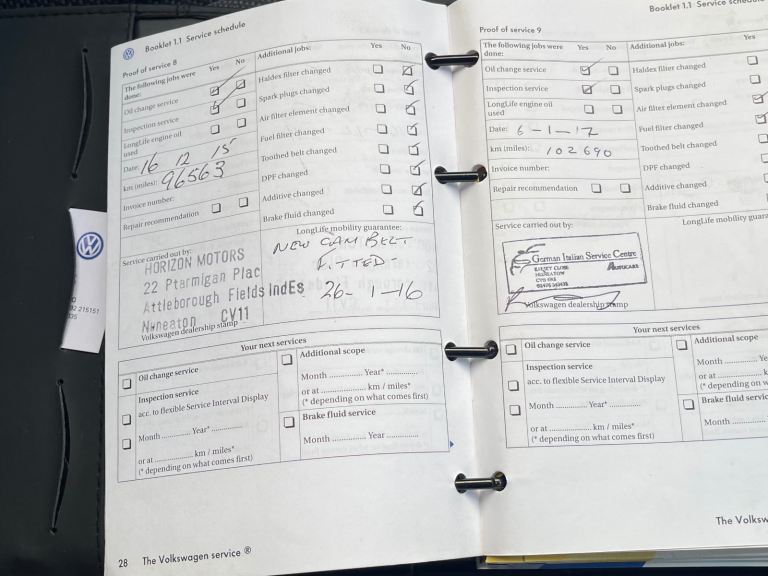 Booklet 1.1 Service schedule
Proof of service 8
The following jobs were done: Yes No
Oil change service
Inspection service
LongLife engine oil used
Date: 16 12 15
km (miles): 96563
Invoice number:
Repair recommendation
Additional jobs: Yes No
Haldex filter changed
Spark plugs changed
Air filter element changed
Fuel filter changed
Toothed belt changed
DPF changed
Additive changed
Brake fluid changed
Service carried out by:
HORIZON MOTORS
22 Ptarmigan Plac
Attleborough Fields IndEs
Nuneaton CV11
Volkswagen dealership stamp
LongLife mobility guarantee:
NEW CAM BELT
FITTED-
26-1-16
Your next services
Oil change service
Inspection service
acc. to flexible Service Interval Display
Month ............ Year* ............
or at .................... km / miles*
(* depending on what comes first)
Additional scope
Month ............ Year* ............
or at .................... km / miles*
(* depending on what comes first)
Brake fluid service
Month ............ Year ............
28 The Volkswagen service ®
92 215151
Booklet 1.1 Service schedule
Proof of service 9
The following jobs were done: Yes No
Oil change service
Inspection service
LongLife engine oil used
Date: 6-1-17
km (miles): 102690
Invoice number:
Repair recommendation
Additional jobs: Yes
Haldex filter changed
Spark plugs changed
Air filter element changed
Fuel filter changed
Toothed belt changed
DPF changed
Additive changed
Brake fluid changed
Service carried out by:
German Italian Service Centre
AUTOCARE
NUNEATON
Volkswagen dealership stamp
LongLife mobility guara
Your next services
Oil change service
Inspection service
acc. to flexible Service Interval Display
Month ............ Year* ............
or at .................... km / miles*
(* depending on what comes first)
Additional scope
Month ............ Ye
or at .................... k
(* depending on w
Brake fluid servic
Month ............
The Volksw